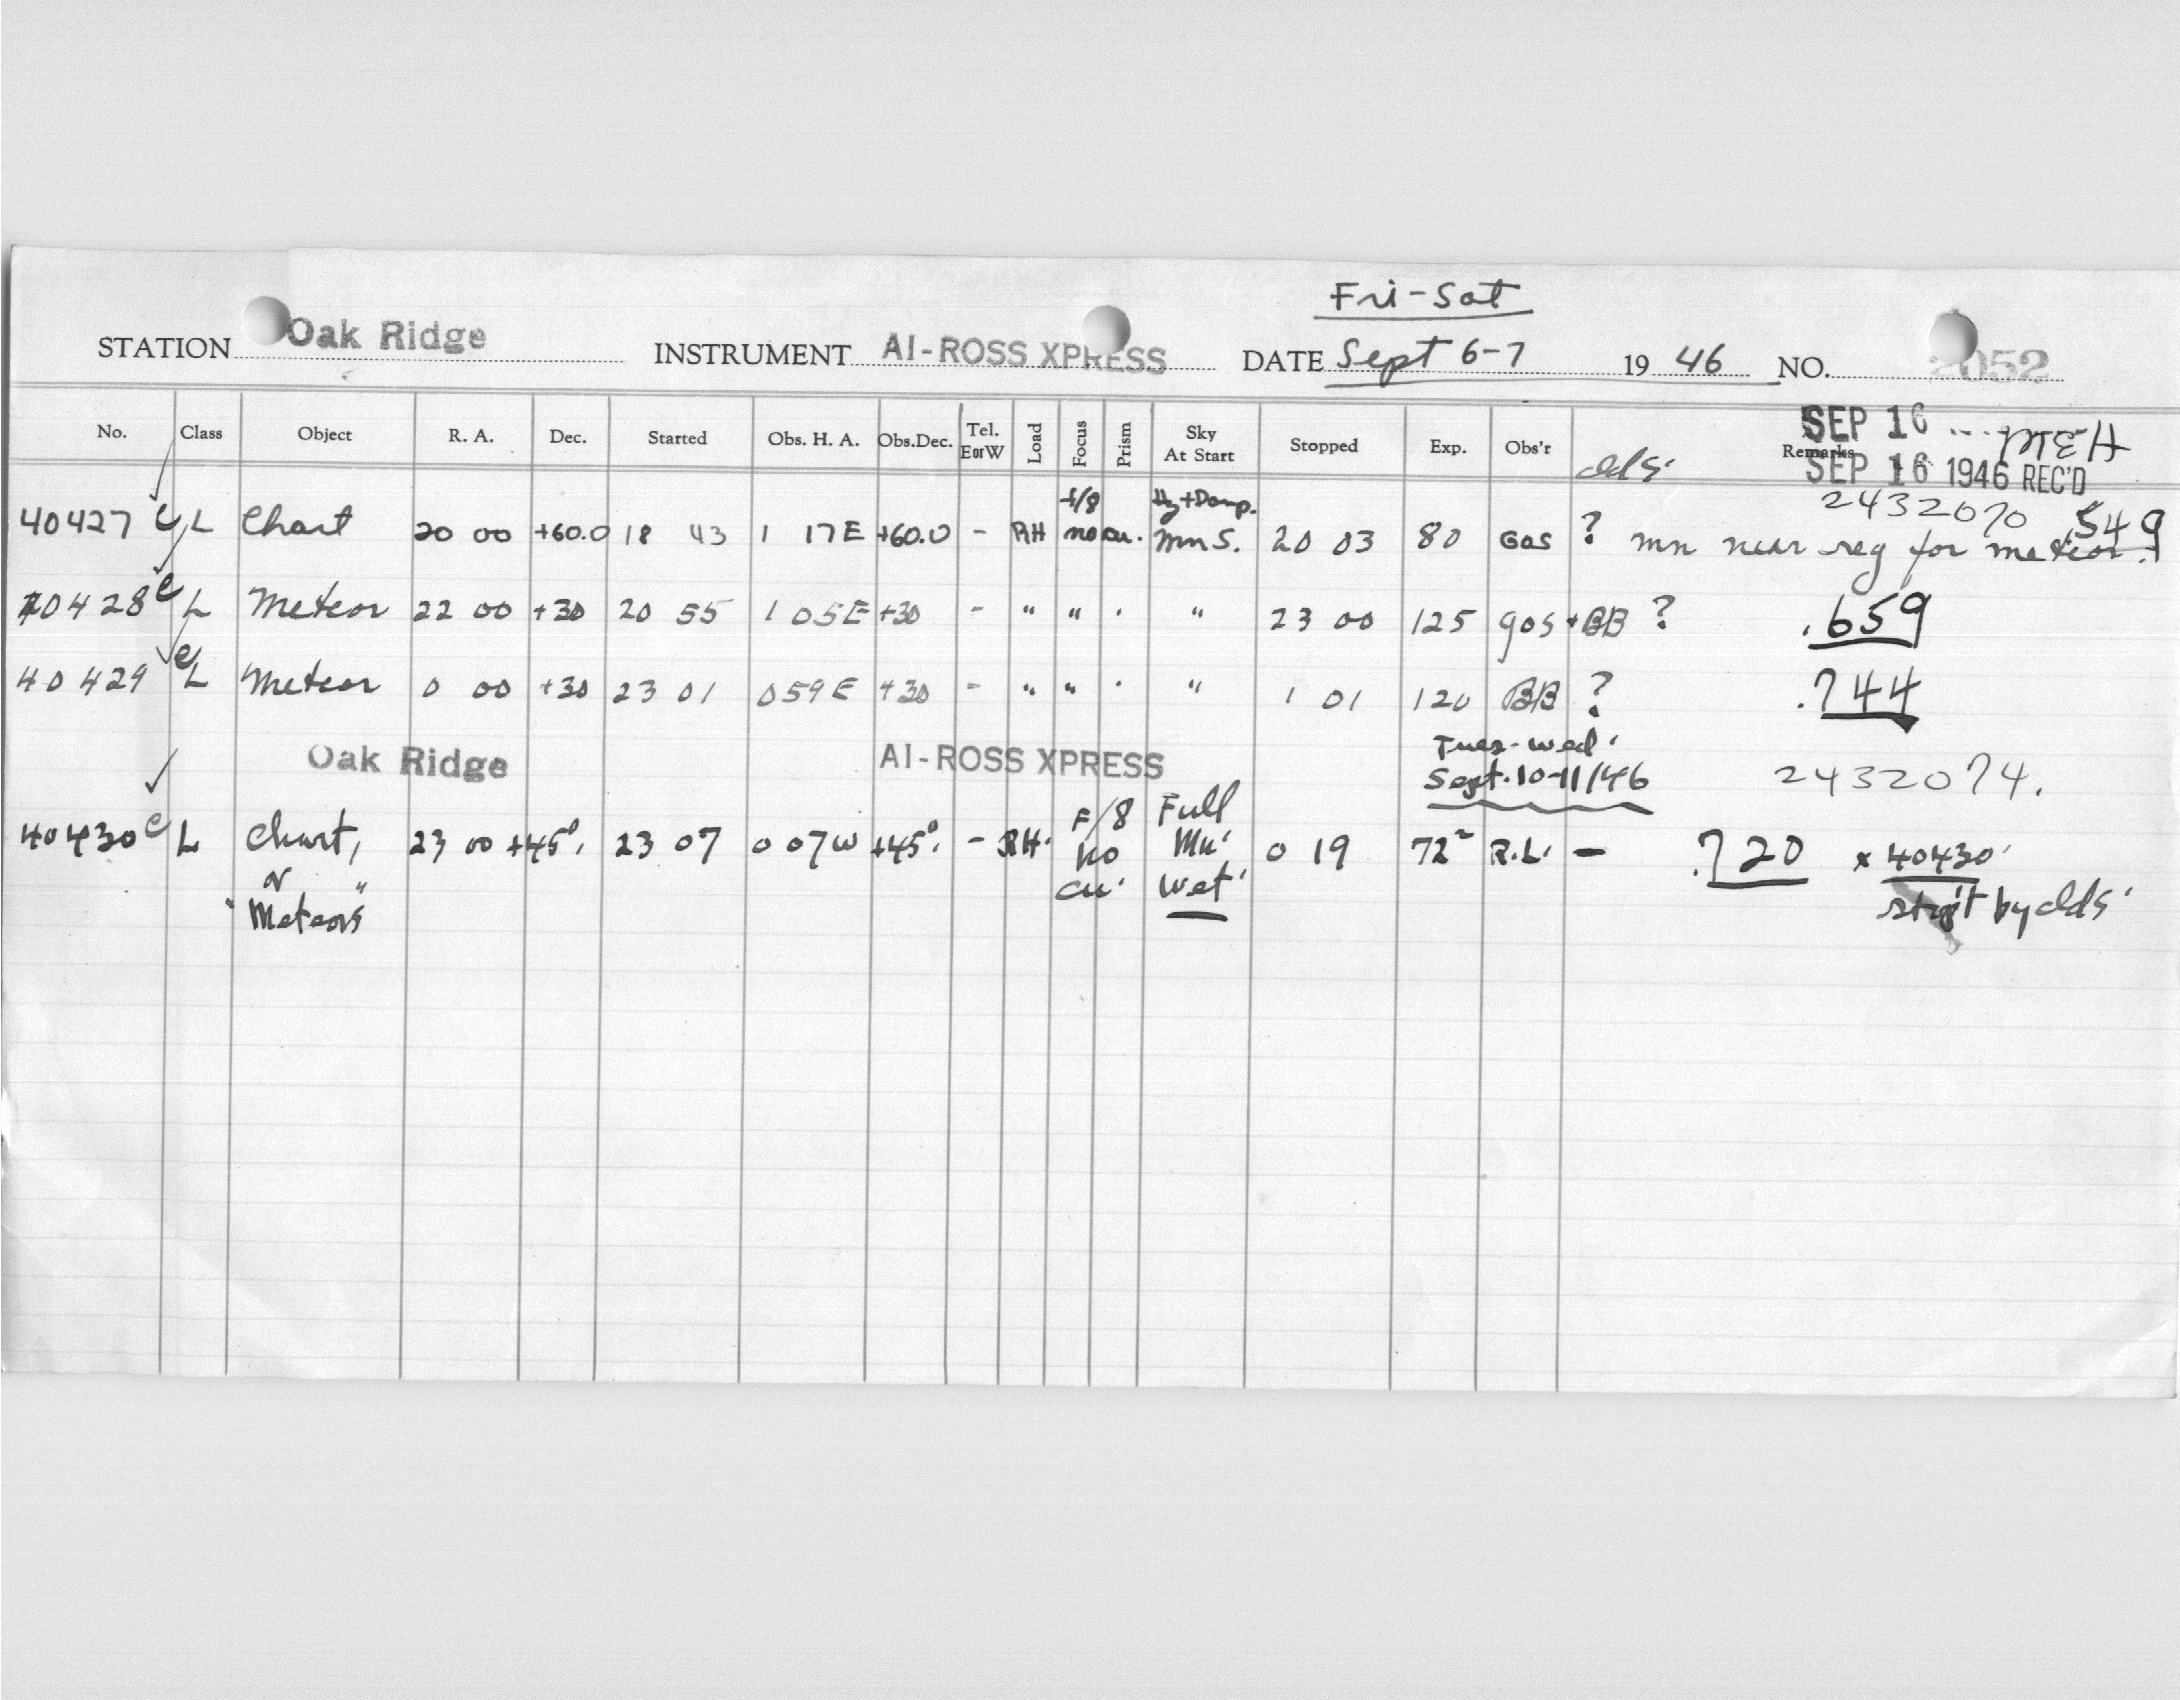 Fri-Sat
STATION Oak Ridge INSTRUMENT AI-ROSS XPRESS DATE Sept 6-7 1946 NO. 2052
No. Class Object R. A. Dec. Started Obs. H. A. Obs.Dec. Tel. E or W Load Focus Prism Sky At Start Stopped Exp. Obs'r clds. Remarks
SEP 16 MEH
SEP 16 1946 REC'D
2432070 .549
40427 c L Chart 20 00 +60.0 18 43 1 17E +60.0 - RH f/8 no cu. Hz+Damp. Mn S. 20 03 80 Gos ? mn near reg for meteor.
40428 c L Meteor 22 00 +30 20 55 1 05E +30 - " " . " 23 00 125 gos + BB ? .659
40429 c L Meteor 0 00 +30 23 01 0 59 E +30 - " " . " 1 01 120 BB ? .744
Oak Ridge AI-ROSS XPRESS Tues-Wed. Sept. 10-11/46 2432074.
40430 c L Chart, or "Meteors" 23 00 +45°. 23 07 0 07W +45°. - RH. F/8 no cu. Full Mn. wet. 0 19 72 R.L. - .720 x 40430
by clds.